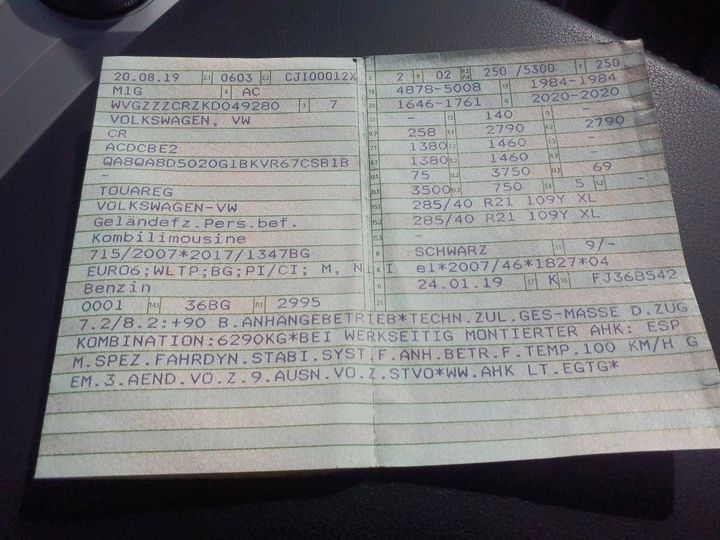 20.08.19 2.1 0603 2.2 CJI00012X
M1G 4 AC
WVGZZZCRZKD049280 3 7
VOLKSWAGEN, VW
CR
ACDCBE2
QA8QA8D5020G18KVR67CSB1B
-
TOUAREG
VOLKSWAGEN-VW
Geländefz.Pers.bef.
Kombilimousine
715/2007*2017/1347BG
EURO6;WLTP;BG;PI/CI; M, N1 I
Benzin
0001 14.1 36BG P.1 2995
L 2 9 02 P.2 P.4 250 /5300 T 250
18 4878-5008 19 1984-1984
20 1646-1761 G 2020-2020
- 13 140 Q -
V.7 258 F.1 2790 F.2 2790
7.1 1380 7.2 1460 7.3 -
8.1 1380 8.2 1460 8.3 -
U.1 75 U.2 3750 U.3 69
O.1 3500 O.2 750 S.1 5 S.2 -
15.1 285/40 R21 109Y XL
15.2 285/40 R21 109Y XL
15.3 -
R SCHWARZ 11 9/-
K e1*2007/46*1827*04
6 24.01.19 17 K 16 FJ368542
21
7.2/8.2:+90 B.ANHÄNGEBETRIEB*TECHN.ZUL.GES-MASSE D.ZUG
KOMBINATION:6290KG*BEI WERKSEITIG MONTIERTER AHK: ESP
M.SPEZ.FAHRDYN.STABI.SYST.F.ANH.BETR.F.TEMP.100 KM/H G
EM.3.AEND.VO.Z.9.AUSN.VO.Z.STVO*WW.AHK LT.EGTG*